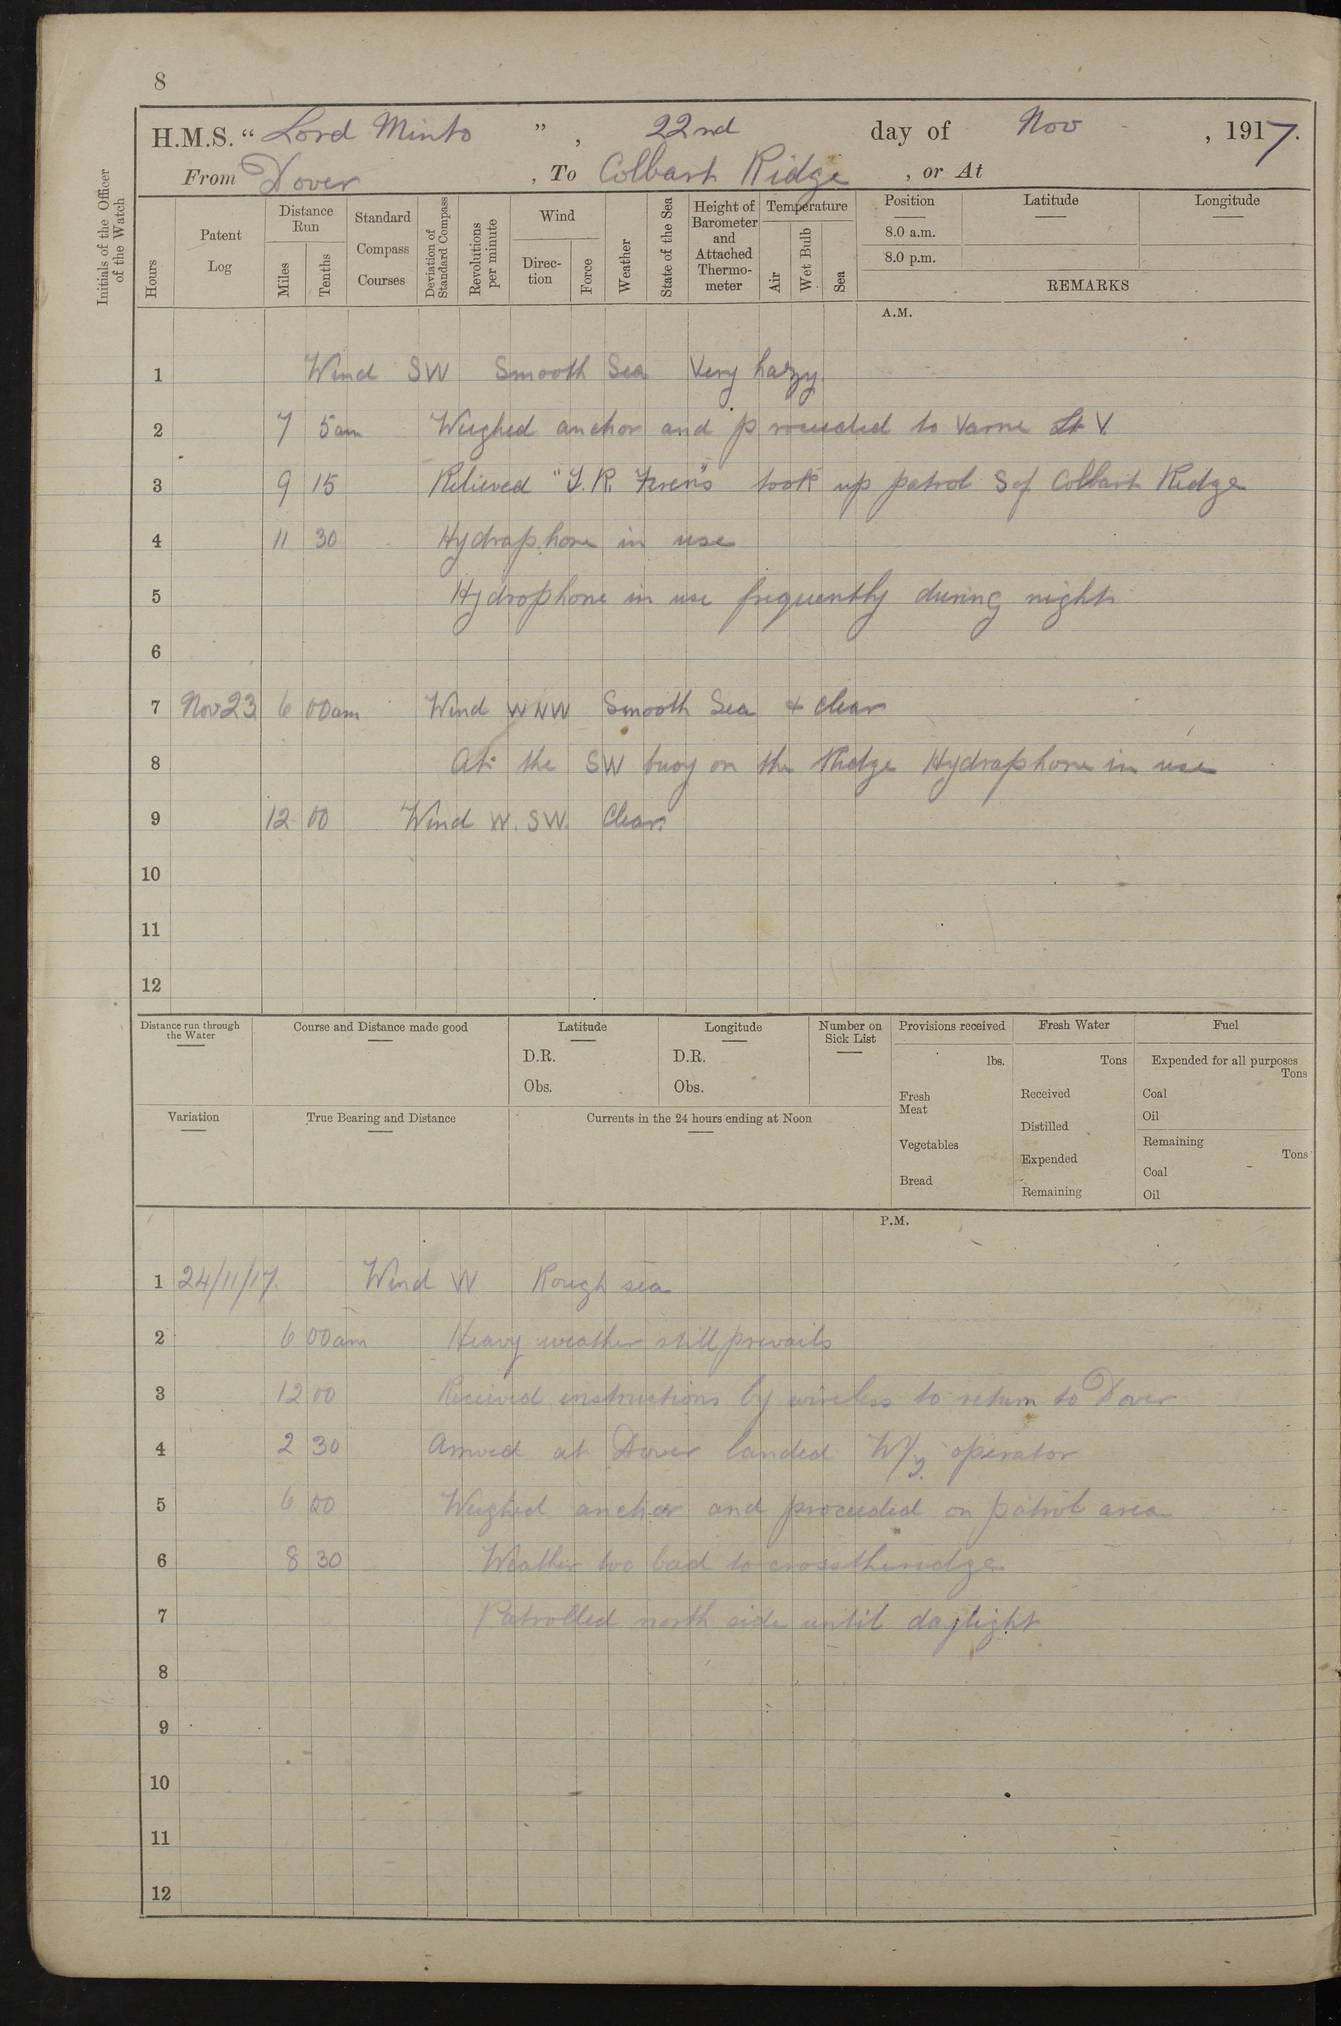 8
H.M.S. "Lord Minto", 22nd day of Nov, 1917.
From Dover, To Colbart Ridge, or At
Initials of the Officer of the Watch
Hours
Patent Log
Distance Run
Miles
Tenths
Standard Compass Courses
Deviation of Standard Compass
Revolutions per minute
Wind
Direction
Force
Weather
State of the Sea
Height of Barometer and Attached Thermometer
Temperature
Air
Wet Bulb
Sea
Position Latitude Longitude
8.0 a.m.
8.0 p.m.
REMARKS
A.M.
1 Wind SW Smooth Sea Very hazy
2 7 5am Weighed anchor and proceeded to Varne Lt V.
3 9 15 Relieved "J.R. " took up patrol S of Colbart Ridge
4 11 30 Hydraphone in use
5 Hydrophone in use frequently during night
6
7 Nov 23 6 00am Wind WNW Smooth Sea & clear
8 At the SW buoy on the Ridge Hydraphone in use
9 12 00 Wind W. SW. Clear.
10
11
12
Distance run through the Water
Course and Distance made good
Latitude
D.R.
Obs.
Longitude
D.R.
Obs.
Number on Sick List
Provisions received
lbs.
Fresh Meat
Vegetables
Bread
Fresh Water
Tons
Received
Distilled
Expended
Remaining
Fuel
Expended for all purposes
Tons
Coal
Oil
Remaining
Tons
Coal
Oil
Variation
True Bearing and Distance
Currents in the 24 hours ending at Noon
P.M.
1 24/11/17. Wind W Rough sea
2 6 00am Heavy weather still prevails
3 12 00 Recieved instructions by wireless to return to Dover
4 2 30 Arrived at Dover landed W/T operator
5 6 00 Weighed anchor and proceeded on patrol area
6 8 30 Weather too bad to cross the ridge
7 Patrolled north side until daylight
8
9
10
11
12